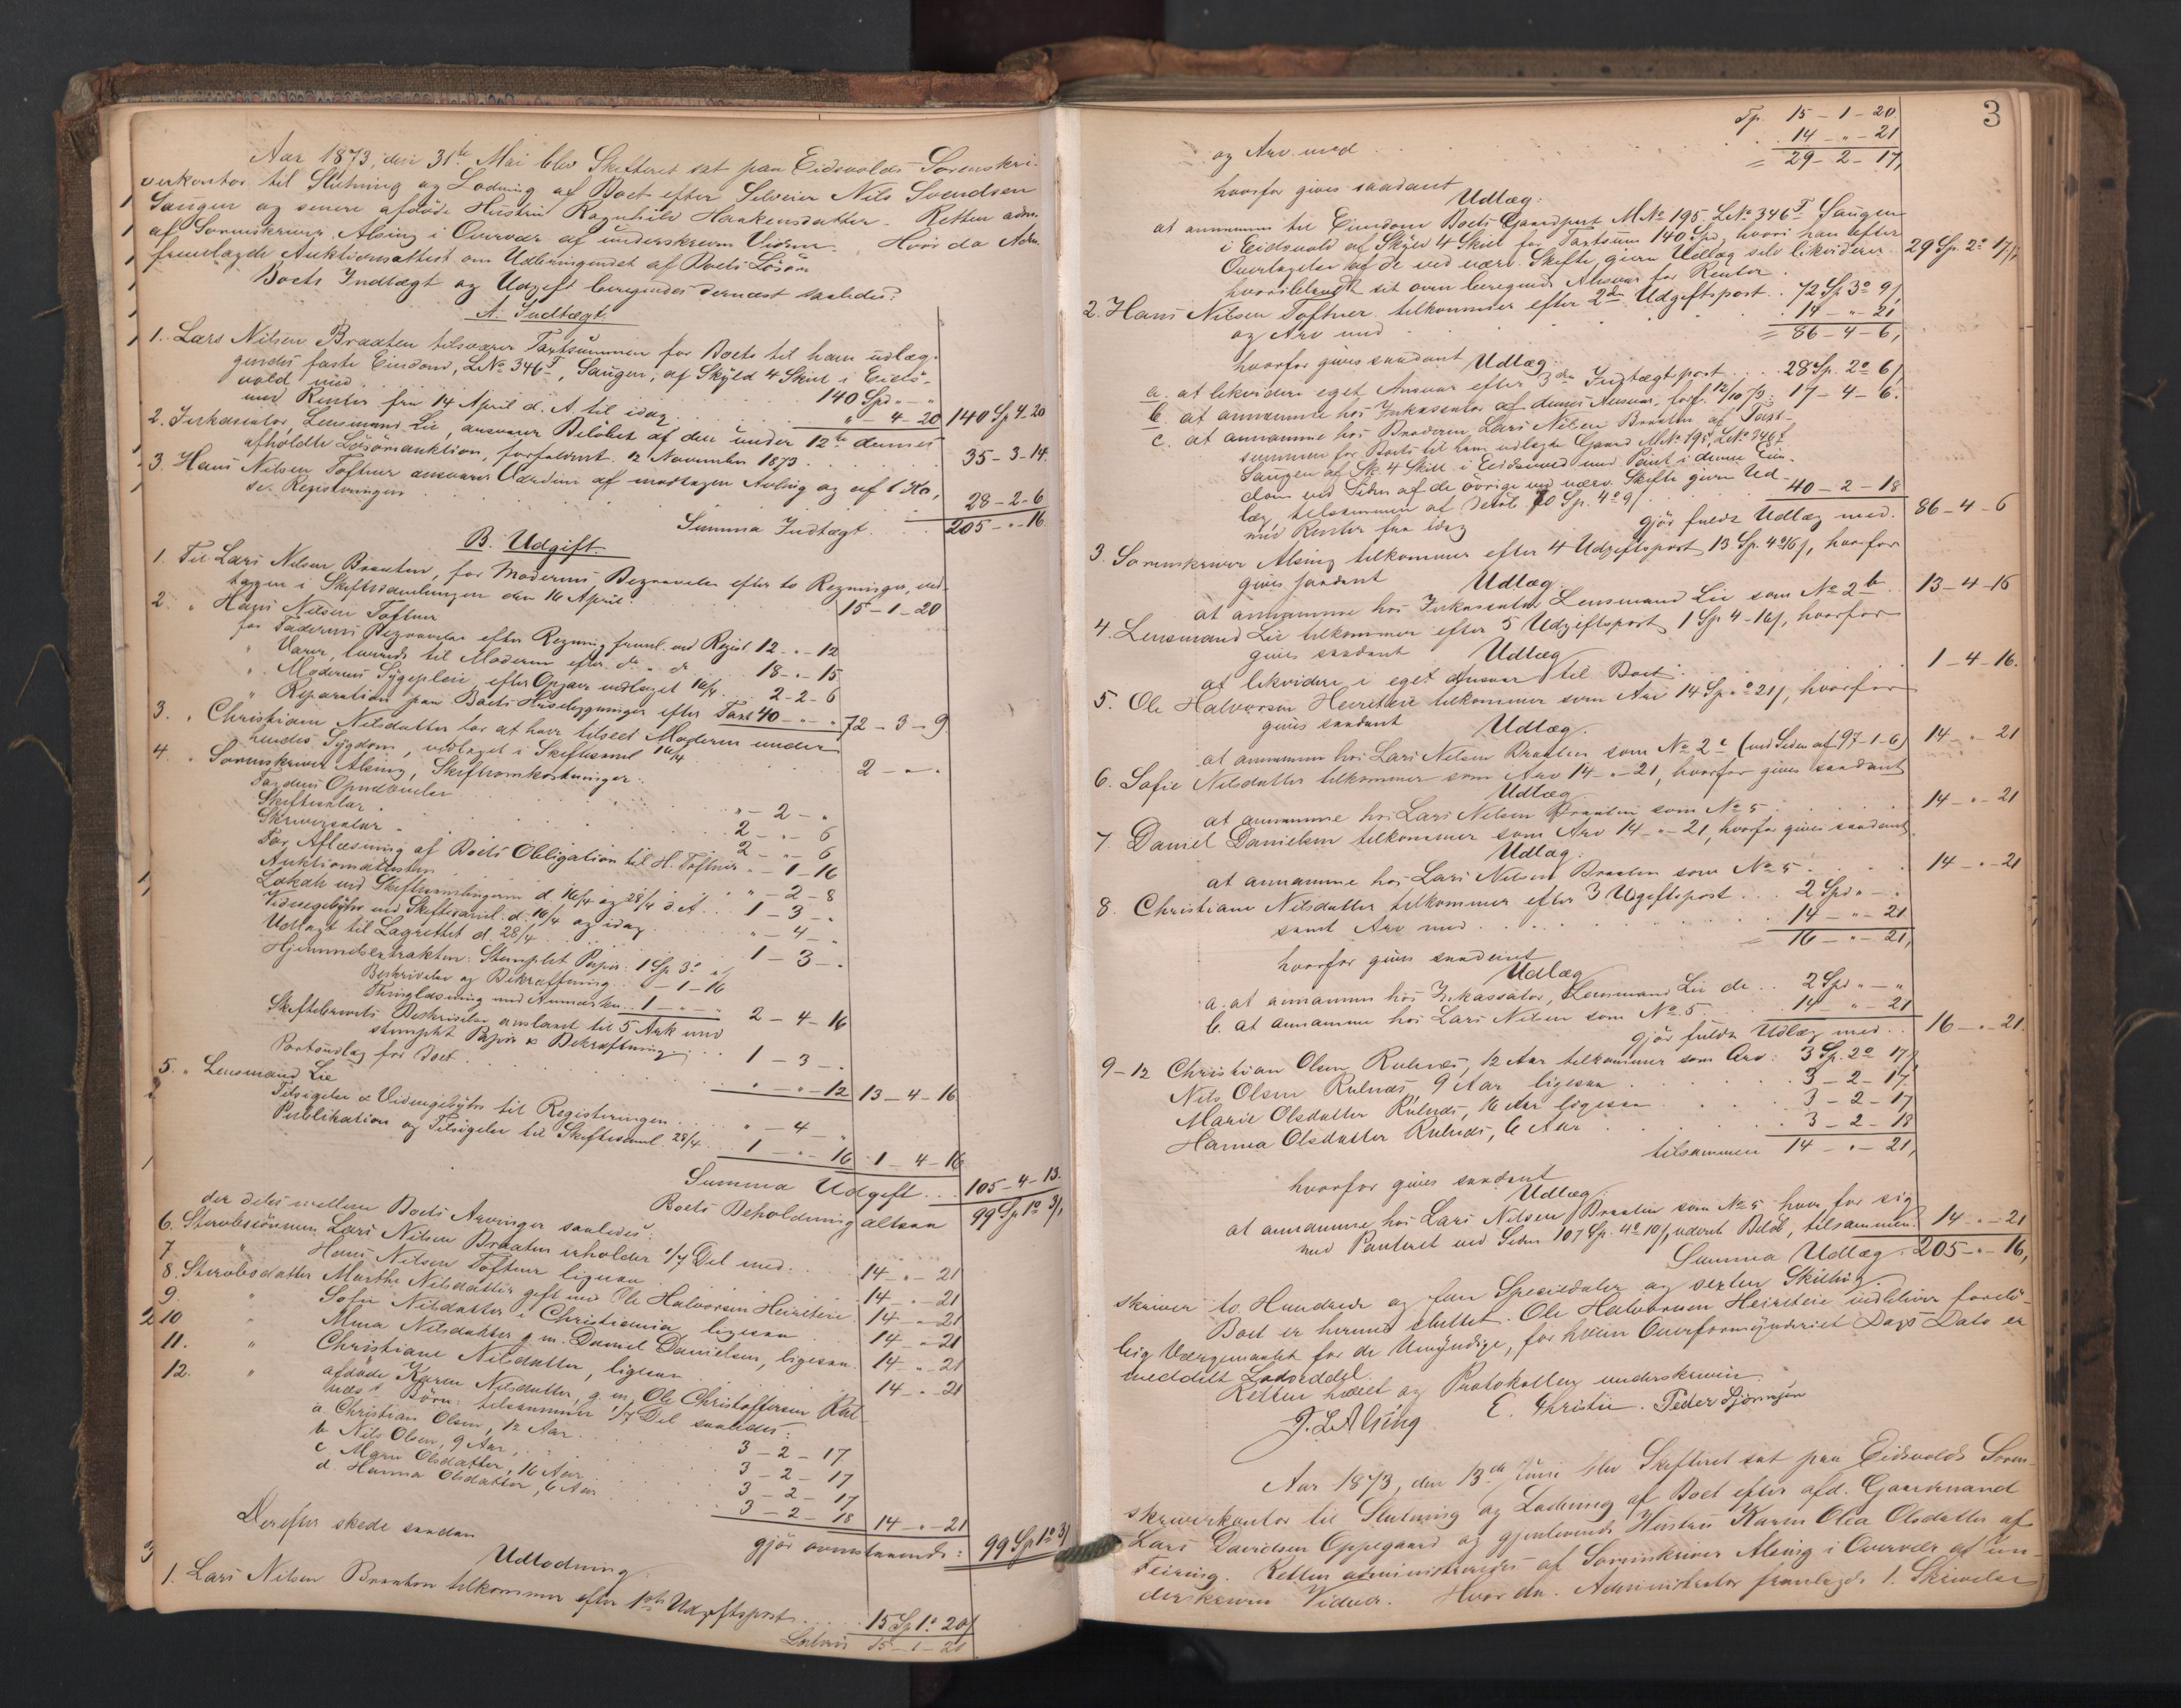 Aar 1873, den 31te Mai blev Skifteret sat paa Eidsvolds Sorenskri-
verkontor til Slutning og Lodning af Boet efter Selveier Nils Svendsen
Saugen og senere afdøde Hustru Ragnhild Haakensdatter. Retten adm.
af Sorenskriver Alsing i Overvær af underskrevne Vidner. Hvor da Adm.
fremlagde Auktionsattest om Udbringendet af Boets Løsøre
Boets Indtægt og Udgift beregnedes dernæst saaledes:
A. Indtægt.
1. Lars Nilsen Braaten tilsvarer Taxtsummen for Boets til ham udlæg-
gendes faste Eiendom, LNo 346f, Saugen, af Skyld 4 Skill i Eids-
vold med 140 Spd " - "
med Renter fra 14 April d. A. til idag " - 4 - 20 140 Sp 4. 20
2. Inkasator, Lensmand Lie, ansvarer Beløbet af den under 12te dennes
afholdte Løsøreauktion, forfaldent 12 November 1873 35 - 3 - 14.
3. Hans Nilsen Toftner ansvarer Værdien af modtagen Avling og af 1 Ko,
se Registreringen 28 - 2 - 6
Summa Indtægt 205 - " - 16
B. Udgift
1. Til Lars Nilsen Braaten, for Moderens Begravelse efter to Regninger, ved-
tagen i Skiftesamlingen den 16 April 15 - 1 - 20
2. " Hans Nilsen Toftner
for Faderens Begravelse efter Regning freml. ved Regist. 12 - " - 12
" Varer, leverede til Moderen efter do " do 18 - " - 15
" Moderens Sygepleie, efter Opgave vedtaget 16/4 2 - 2 - 6
" Reparation paa Boets Husebygninger efter Taxt 40 - " - " 72 - 3 - 9
3. " Christiane Nilsdatter for at have tilseet Moderen under
hendes Sygdom, vedtaget i Skiftesaml 16/4 2 - " - "
4. " Sorenskriver Alsing, Skifteomkostninger:
Fandens Opnævnelse " - 2 - "
Skiftesalær 2 - " - 6
Skriversalær 2 - " - 6
For Aflæsning af Boets Obligation til H. Toftner " - 1 - 16
Auktionsattesten " - 2 - 8
Lokale ved Skiftesamlingerne d. 16/4 og 28/4 d. A. 1 - 3 - "
Vidnegebyhr ved Skiftesaml. d. 16/4 og idag " - 4 - "
Udlagt til Lagrettet d. 28/4 1 - 3 - "
Hjemmelsextrakten: Stemplet Papir: 1 Sp 3 o "
Beskrivelse og Bekræftning " - 1 - 16
Thinglæsning med Anmærkn. 1 - " - " 2 - 4 - 16
Skiftebrevets Beskrivelse anslaaet til 5 Ark med
stemplet Papir & Bekræftning 1 - 3 - "
Portoudlæg for Boet " - " - 12 13 - 4 - 16
5. " Lensmand Lie
Tilsigelse & Vidnegebyhr til Registreringen " - 4 - "
Publikation og Tilsigelse til Skiftesaml. 28/4 1 - " - 16 1 - 4 - 16
Summa Udgift 105 - 4 - 13.
Boets Beholdning altsaa 99 Sp 1 o 3/,
der deles mellem Boets Arvinger saaledes:
6. Sterbosønnen Lars Nilsen Braaten erholder 1/7 Del med 14 - " - 21
7. " Hans Nilsen Toftner ligesaa 14 - " - 21
8. Sterbosdatter Marthe Nilsdatter gift med Ole Halvorsen Heireteie 14 - " - 21
9. " Sofie Nilsdatter i Christiania ligesaa 14 - " - 21
10 " Mina Nilsdatter g. m. Daniel Danielsen, ligesaa 14 - " - 21
11. " Christiane Nilsdatter, ligesaa 14 - " - 21
12. " afdøde Karen Nilsdatter, g. m. Ole Christoffersen Rul-
nds 4 Børn: tilsammen 1/7 Del saaledes:
a. Christian Olsen, 12 Aar 3 - 2 - 17
b Nils Olsen, 9 Aar, 3 - 2 - 17
c. Marie Olsdatter, 16 Aar 3 - 2 - 17
d. Hanna Olsdatter, 6 Aar 3 - 2 - 18 14 - " - 21
gjør ovenstaaende: 99 Sp 1 o 3/
Derefter skede saadan
Udlodning
1. Lars Nilsen Braaten tilkommer efter 1ste Udgiftspost 15 Sp 1 o 20/
Lateris 15 - 1 - 20
3
Tp. 15 - 1 - 20
og Arv med 14 - " - 21
= 29 - 2 - 17,
hvorfor gives saadant
Udlæg:
at annamme til Eiendom Boets Gaardpart MNo 195. LNo 346f Saugen
i Eidsvold af Skyld 4 Skill for Taxtsum 140 Spd, hvori han efter
Overtagelse af de ved nærv. Skifte givne Udlæg selv likviderer 29 Sp. 2 o 17/,
hvoriblandt sit oven beregnede Ansvar for Renter.
2. Hans Nilsen Toftner tilkommer efter 2den Udgiftspost 72 Sp 3 o 9/
og Arv med 14 - " - 21
= 86 - 4 - 6,
hvorfor gives saadant Udlæg:
a. at likvidere eget Ansvar efter 3die Indtægtspost 28 Sp. 2 o 6/
b. at annamme hos Inkasator af dennes Ansvar, forf. 12/10 73. 17 - 4 - 6.
c. at annamme hos Broderen Lars Nilsen Braaten af Taxt-
summen for Boets til ham udlagte Gaard MNo 195, LNo 346f
Saugen af Sk. 4 Skill i Eidsvold med Pant i denne Eien-
dom ved Siden af de øvrige ved nærv. Skifte givne Ud-
læg, tilsammen af Beløb 70 Sp. 4 o 9/
med Renter fra idag 40 - 2 - 18
gjør fuldt Udlæg med. 86 - 4 - 6
3. Sorenskriver Alsing tilkommer efter 4 Udgiftspost 13 Sp. 4 o 16/, hvorfor
gives saadant Udlæg:
at annamme hos Inkasator Lensmand Lie som No 2 b 13 - 4 - 16
4. Lensmand Lie tilkommer efter 5 Udgiftspost 1 Sp 4 - 16/, hvorfor
gives saadant Udlæg
at likvidere i eget Ansvar til Boet 1 - 4 - 16.
5. Ole Halvorsen Heireteie tilkommer som Arv 14 Sp " o 21/, hvorfor
gives saadant Udlæg.
at annamme hos Lars Nilsen Braaten som No 2 c (ved Siden af 97-1-6) 14 - " - 21
6. Sofie Nilsdatter tilkommer som Arv 14 - " - 21, hvorfor gives saadant
Udlæg.
at annamme hos Lars Nilsen Braaten som No 5 14 - " - 21
7. Daniel Danielsen tilkommer som Arv 14 - " - 21, hvorfor gives saadant
Udlæg.
at annamme hos Lars Nilsen Braaten som No 5 14 - " - 21
8. Christiane Nilsdatter tilkommer efter 3 Udgiftspost 2 Spd " - "
samt Arv med 14 - " - 21
= 16 - " - 21,
hvorfor gives saadant
Udlæg
a. at annamme hos Inkassator, Lensmand Lie de 2 Spd " - "
b. at annamme hos Lars Nilsen som No 5 14 - " - 21
gjør fuldt Udlæg med 16 - " - 21.
9-12 Christian Olsen Rulnds, 12 Aar tilkommer som Arv: 3 Sp. 2 o 17/
Nils Olsen Rulnds 9 Aar ligesaa 3 - 2 - 17.
Marie Olsdatter Rulnds, 16 Aar ligesaa 3 - 2 - 17
Hanna Olsdatter Rulnds, 6 Aar 3 - 2 - 18
tilsammen 14 - " - 21,
hvorfor gives saadant
Udlæg:
at annamme hos Lars Nilsen Braaten som No 5 hver for sig
med Panteret ved Siden 107 Sp. 4 o 10/, udøvede Beløb, tilsammen 14 - " - 21
Summa Udlæg 205 - " - 16,
skriver to Hundrede og fem Speciedaler og sexten Skilling.
Boet er hermed sluttet. Ole Halvorsen Heireteie indbliver forelø-
big Værgemaalet for de Umyndige, for hvem Overformynderiet Dags Dato er
meddelt Lodseddel.
Retten hævet og Protokollen underskreven.
J. L. Alsing E. Christie. Peder Bjørnsen
Aar 1873, den 13de Juni blev Skifteret sat paa Eidsvolds Soren-
skriverkontor til Slutning og Lodning af Boet efter afd. Gaardmand
Lars Davidsen Oppegaard og gjenlevende Hustru Karen Olea Olsdatter af
Feiring. Retten administreredes af Sorenskriver Alsing i Overvær af un-
derskrevne Vidner. Hvor da Administrator fremlagde 1. Skrivelse